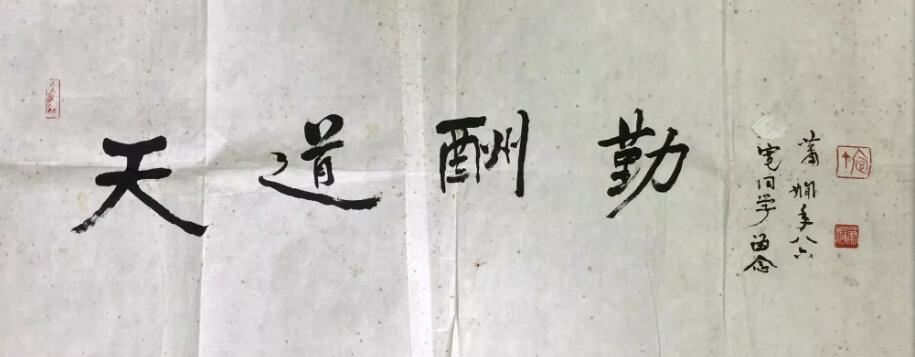 天道酬勤
同学留念
蕭娴年八六